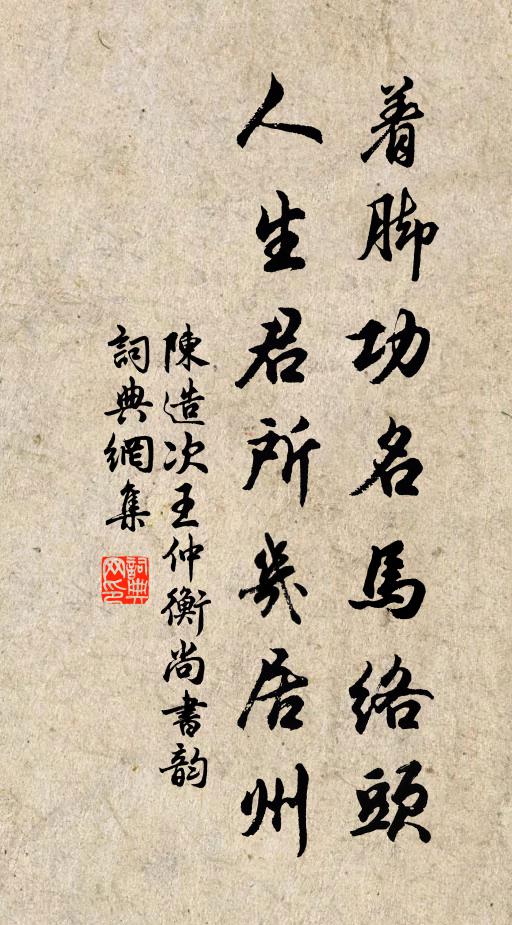 着脚功名馬絡頭
人生君所幾居州
陳造次王仲衡尚書韵
詞典網集
詞典網印